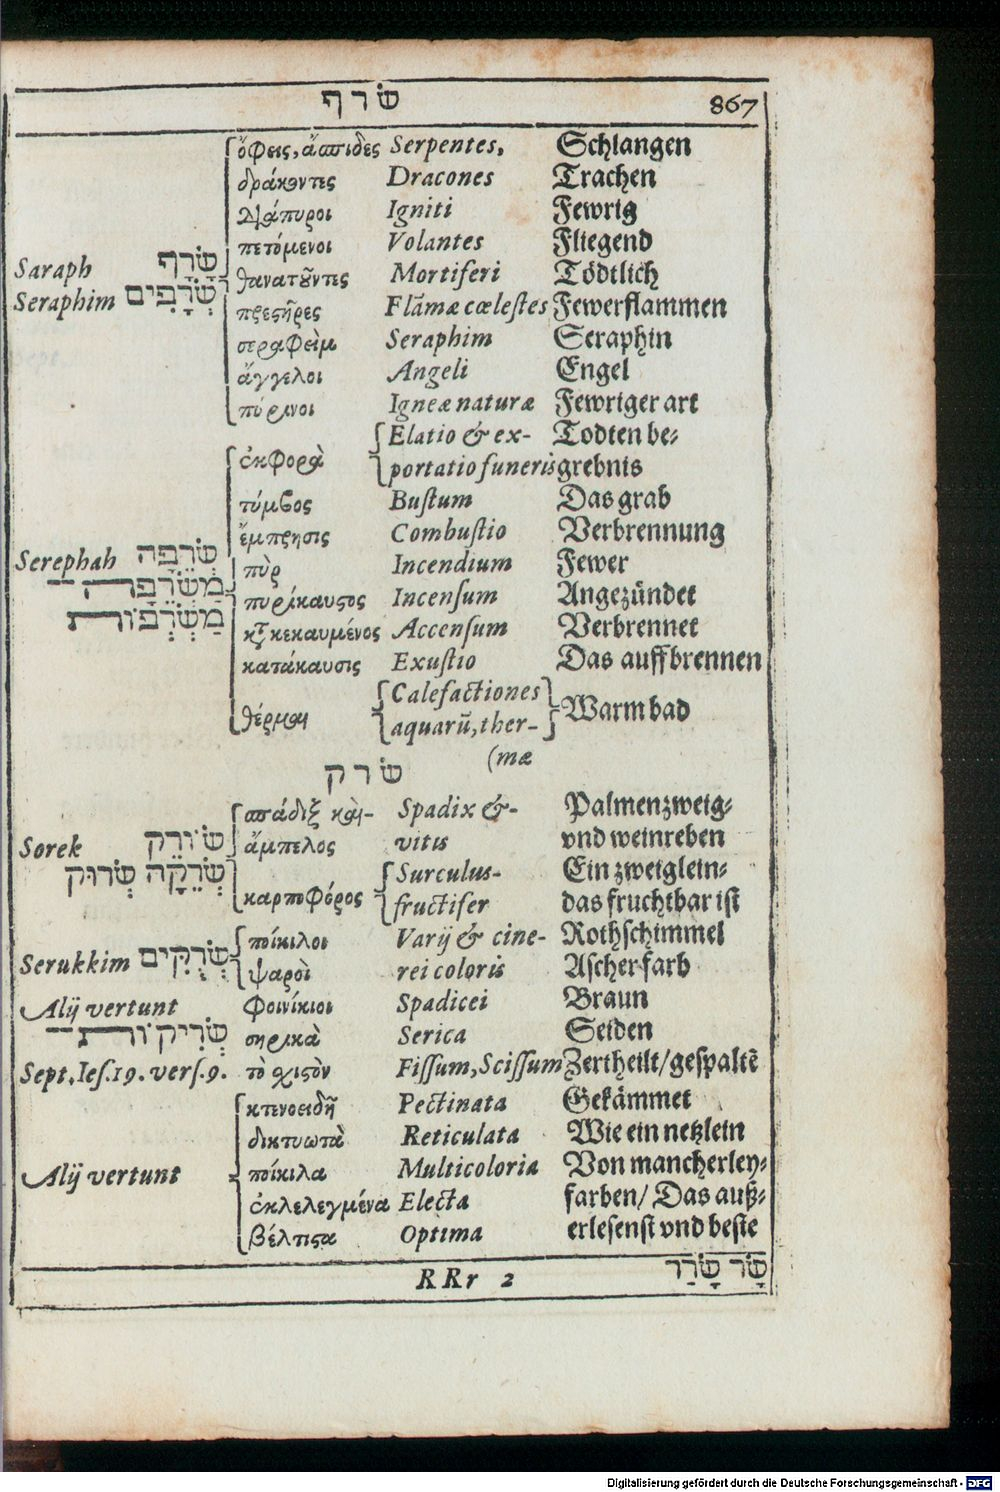 שׂ ר ף 867
ὄφεις, ἄσπιδες Serpentes, Schlangen
δράκοντες Dracones Trachen
διάπυροι Igniti Fewrig
πετόμενοι Volantes Fliegend
Saraph שָׂרָף
θανατοῦντες Mortiferi Tödtlich
Seraphim שְׂרָפִים
πρεστῆρες Flãmæ cœlestes Fewerflammen
σεραφεὶμ Seraphim Seraphin
ἄγγελοι Angeli Engel
πύρινοι Igneæ naturæ Fewriger art
ἐκφορὰ Elatio & ex- Todten be-
portatio funeris grebnis
τύμβος Bustum Das grab
ἔμπρησις Combustio Verbrennung
Serephah שְׂרֵפָה
πὺρ Incendium Fewer
מַשְׂרָפָה
πυρίκαυστος Incensum Angezündet
מַשְׂרְפוֹת
κατακεκαυμένος Accensum Verbrennet
κατάκαυσις Exustio Das auffbrennen
θέρμαι Calefactiones Warm bad
aquarũ, ther-
(mæ
שׂ ר ק
σπάδιξ καὶ- Spadix &- Palmenzweig-
Sorek שׂוֹרֵק ἄμπελος vitis vnd weinreben
שְׂרֵקָה שְׂרוּק Surculus- Ein zweiglein-
καρποφόρος fructifer das fruchtbar ist
ποίκιλοι Varij & cine- Rothschimmel
Serukkim שְׂרֻקִּים ψαροὶ rei coloris Ascherfarb
Alij vertunt φοινίκιοι Spadicei Braun
שְׂרִיקוֹת σηρικὰ Serica Seiden
Sept. Ies. 19. vers. 9. τὸ σχιστὸν Fissum, Scissum Zertheilt/gespaltẽ
κτενοειδῆ Pectinata Gekämmet
δικτυωτὰ Reticulata Wie ein netzlein
Alij vertunt ποίκιλα Multicoloria Von mancherley-
ἐκλελεγμένα Electa farben/ Das auß-
βέλτιστα Optima erlesenst vnd beste
RRr 2 שָׂר שָׂרַר
Digitalisierung gefördert durch die Deutsche Forschungsgemeinschaft - DFG